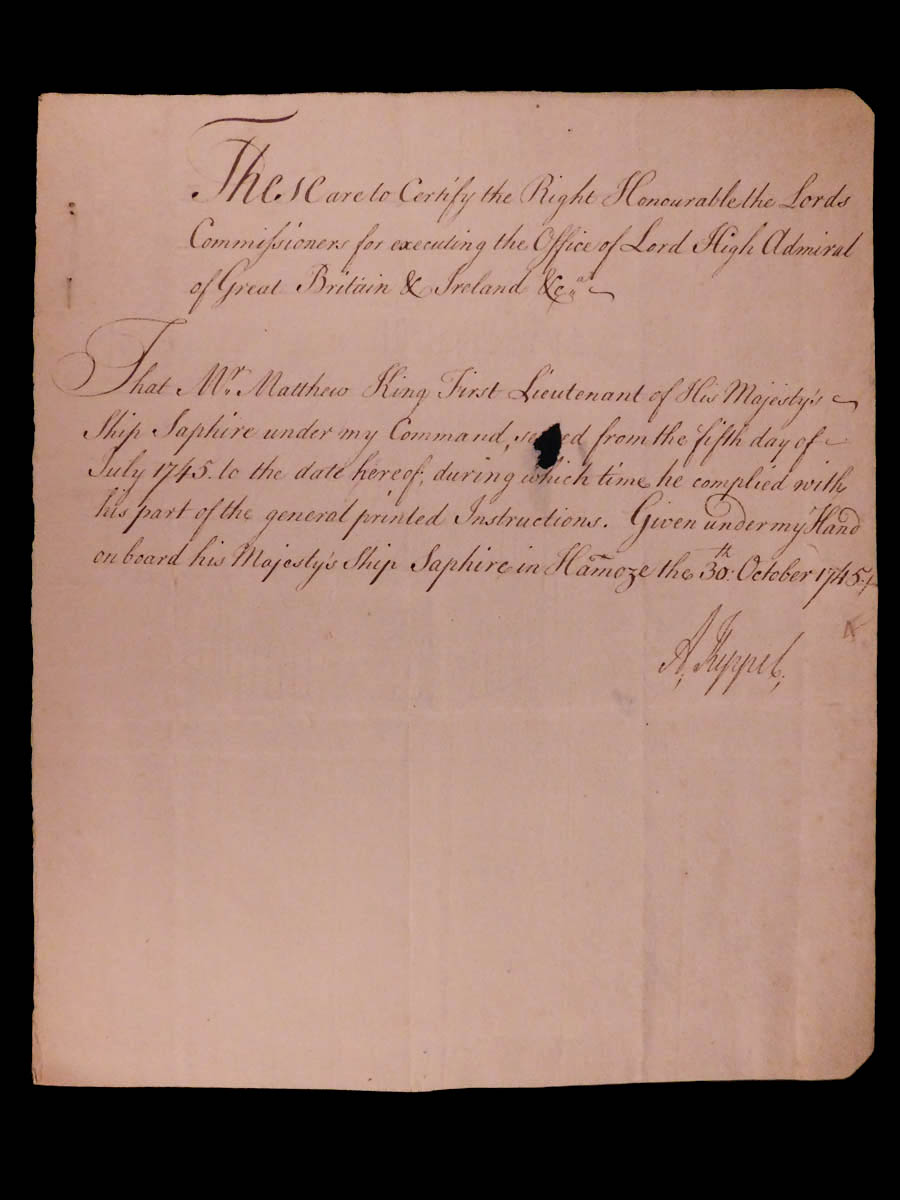 These are to Certify the Right Honourable the Lords
Commissioners for executing the Office of Lord High Admiral
of Great Britain & Ireland &c.ª
That Mr. Matthew King First Lieutenant of His Majesty's
Ship Saphire under my Command, se ed from the fifth day of
July 1745. to the date hereof; during which time he complied with
his part of the general printed Instructions. Given under my Hand
on board his Majesty's Ship Saphire in Hamoze the 30th: October 1745.
A. Keppel.